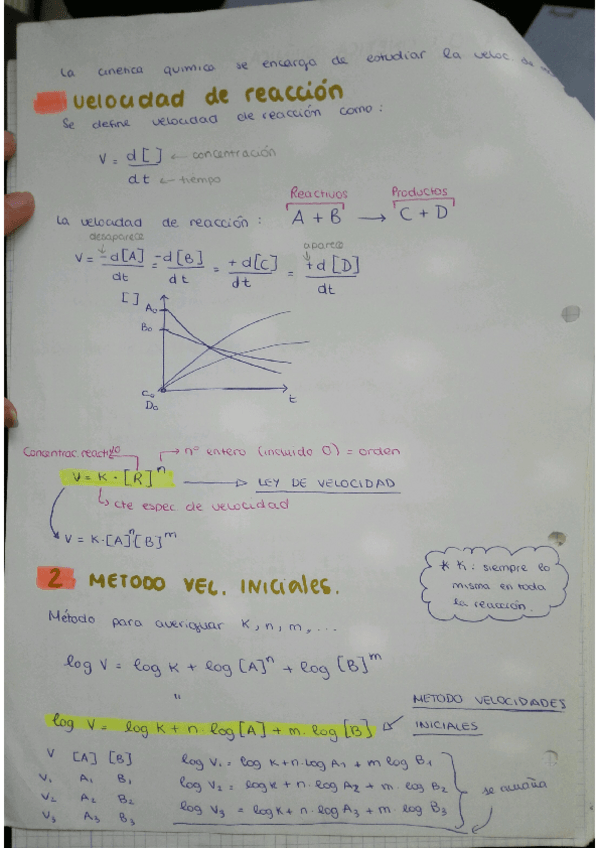 La cinética química se encarga de estudiar la veloc. de
velocidad de reacción
Se define velocidad de reacción como:
V = d[ ] ← concentración
dt ← tiempo
Reactivos Productos
La velocidad de reacción: A + B → C + D
desaparece aparece
V = -d[A] = -d[B] = +d[C] = +d[D]
dt dt dt dt
[ ]
A₀
B₀
C₀
D₀
t
Concentrac. reactivo → nº entero (incluido 0) = orden
V = K · [R]ⁿ → LEY DE VELOCIDAD
↳ cte espec de velocidad
V = K·[A]ⁿ[B]ᵐ
* K: siempre la
misma en toda
la reacción.
2 METODO VEL. INICIALES.
Método para averiguar K, n, m, ...
log V = log K + log [A]ⁿ + log [B]ᵐ
"
log V = log K + n · log [A] + m · log [B]
METODO VELOCIDADES
INICIALES
V [A] [B]
V₁ A₁ B₁ log V₁ = log K + n · log A₁ + m log B₁
V₂ A₂ B₂ log V₂ = log K + n · log A₂ + m · log B₂
V₃ A₃ B₃ log V₃ = log K + n · log A₃ + m · log B₃
se